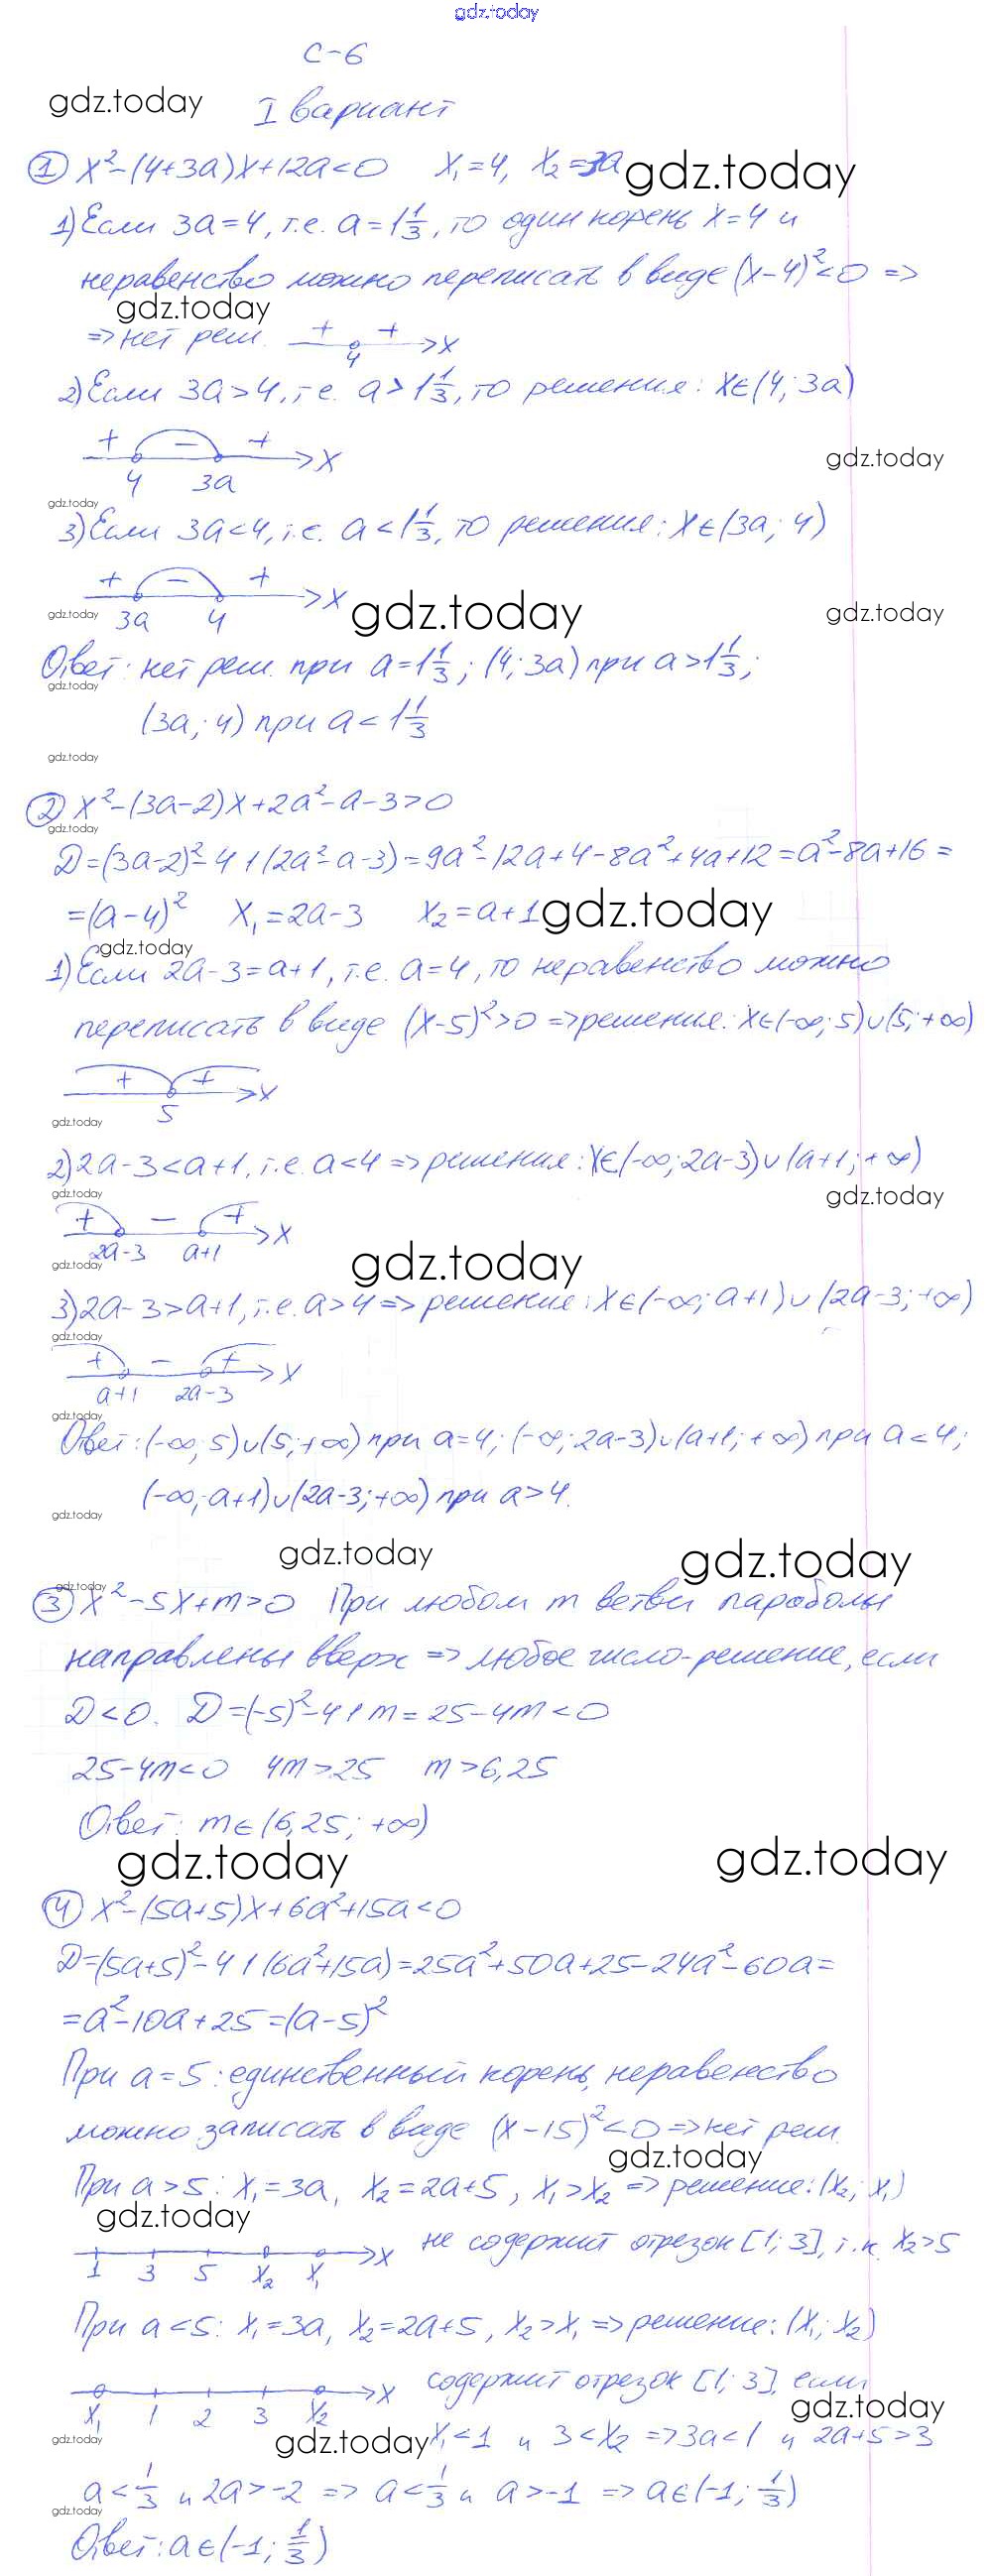 gdz.today
С-6
gdz.today
I вариант
① x²-(4+3a)x+12a<0 x₁=4, x₂=3a gdz.today
1) Если 3a=4, т.е. a=1 1/3, то один корень x=4 и
неравенство можно переписать в виде (x-4)²<0 =>
gdz.today
=> нет реш. + + x
4
2) Если 3a>4, т.е. a>1 1/3, то решения: x∈(4; 3a)
+ - + x
gdz.today
4 3a
gdz.today
3) Если 3a<4, т.е. a<1 1/3, то решения: x∈(3a; 4)
+ - + x
gdz.today gdz.today gdz.today
3a 4
Ответ: нет реш. при a=1 1/3; (4; 3a) при a>1 1/3;
gdz.today
(3a; 4) при a<1 1/3
gdz.today
② x²-(3a-2)x+2a²-a-3>0
gdz.today
D=(3a-2)²-4·1·(2a²-a-3)=9a²-12a+4-8a²+4a+12=a²-8a+16=
=(a-4)² x₁=2a-3 x₂=a+1 gdz.today
gdz.today
1) Если 2a-3=a+1, т.е. a=4, то неравенство можно
переписать в виде (x-5)²>0 => решения: x∈(-∞; 5)∪(5; +∞)
+ + x
5
gdz.today
2) 2a-3<a+1, т.е. a<4 => решения: x∈(-∞; 2a-3)∪(a+1; +∞)
gdz.today gdz.today
+ - + x
2a-3 a+1
gdz.today gdz.today
3) 2a-3>a+1, т.е. a>4 => решения: x∈(-∞; a+1)∪(2a-3; +∞)
gdz.today
+ - + x
a+1 2a-3
gdz.today
Ответ: (-∞; 5)∪(5; +∞) при a=4; (-∞; 2a-3)∪(a+1; +∞) при a<4;
(-∞; a+1)∪(2a-3; +∞) при a>4.
gdz.today
gdz.today gdz.today
gdz.today
③ x²-5x+m>0 При любом m ветви параболы
направлены вверх => любое число-решение, если
D<0. D=(-5)²-4·1·m=25-4m<0
25-4m<0 4m>25 m>6,25
Ответ: m∈(6,25; +∞)
gdz.today gdz.today
④ x²-(5a+5)x+6a²+15a<0
D=(5a+5)²-4·1·(6a²+15a)=25a²+50a+25-24a²-60a=
=a²-10a+25=(a-5)²
При a=5: единственный корень, неравенство
можно записать в виде (x-15)²<0 => нет реш.
gdz.today
При a>5: x₁=3a, x₂=2a+5, x₁>x₂ => решение: (x₂; x₁)
gdz.today
x не содержит отрезок [1; 3], т.к. x₂>5
1 3 5 x₂ x₁
При a<5: x₁=3a, x₂=2a+5, x₂>x₁ => решение: (x₁; x₂)
x содержит отрезок [1; 3], если
gdz.today
x₁ 1 2 3 x₂
gdz.today gdz.today x₁<1 и 3<x₂ => 3a<1 и 2a+5>3
a<1/3 и 2a>-2 => a<1/3 и a>-1 => a∈(-1; 1/3)
gdz.today
Ответ: a∈(-1; 1/3)